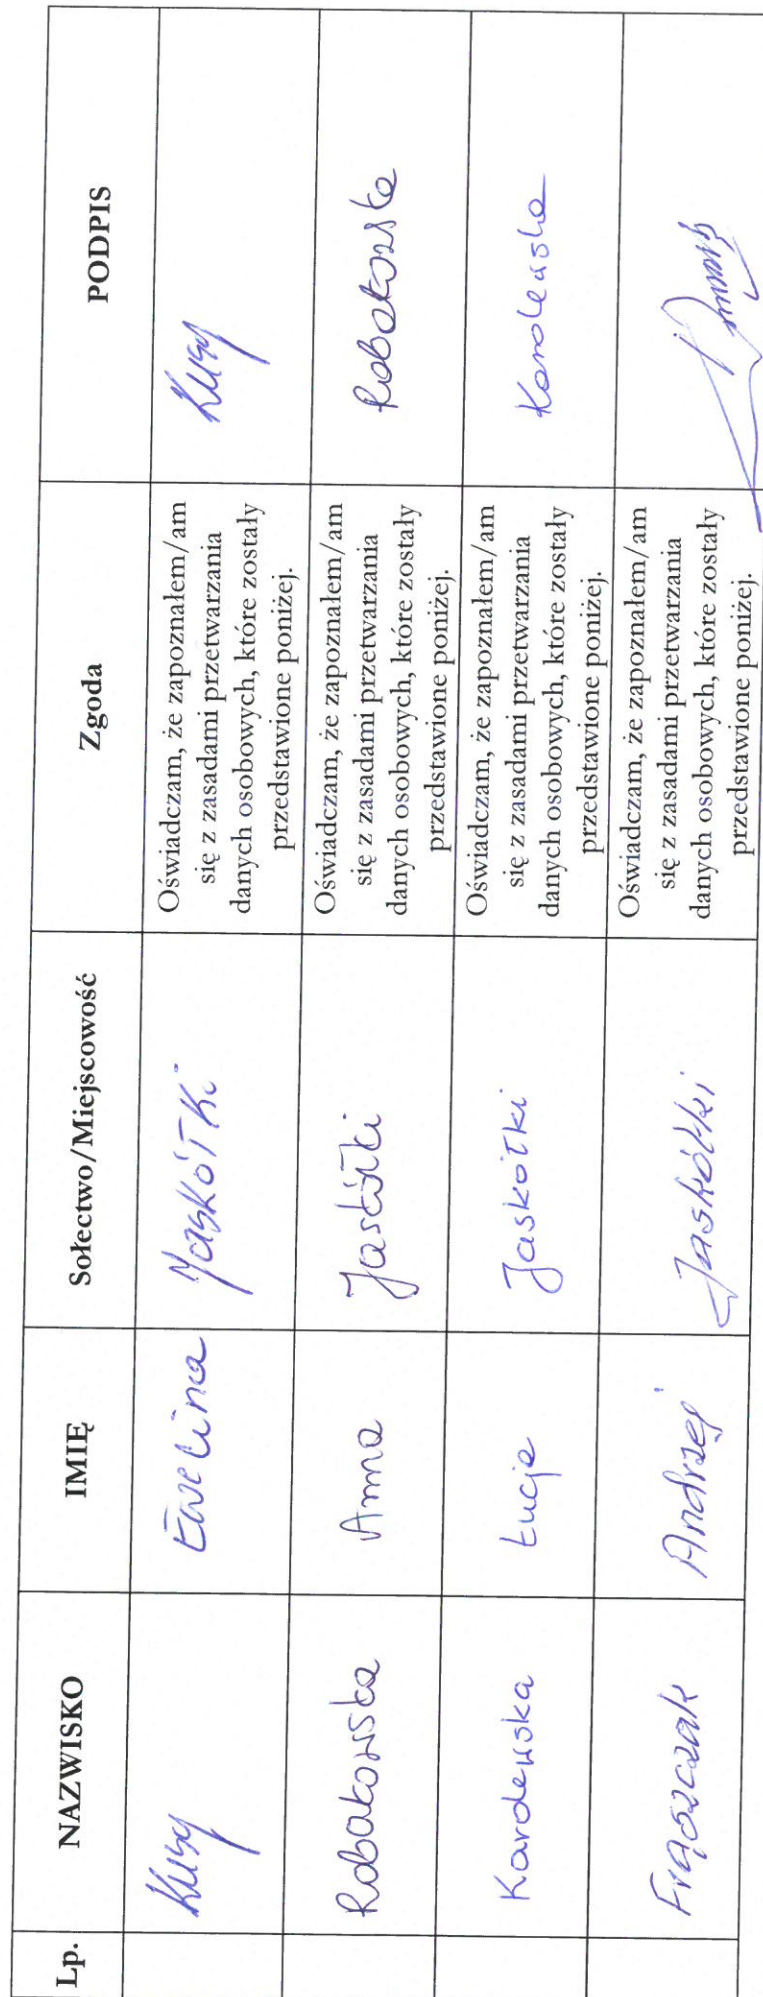 Lp. NAZWISKO IMIĘ Sołectwo/Miejscowość Zgoda PODPIS
Kusy Ewelina Jaskółki Oświadczam, że zapoznałem/am
się z zasadami przetwarzania
danych osobowych, które zostały
przedstawione poniżej. Kusy
Robakowska Anna Jaskółki Oświadczam, że zapoznałem/am
się z zasadami przetwarzania
danych osobowych, które zostały
przedstawione poniżej. Robakowska
Karolewska Łucja Jaskółki Oświadczam, że zapoznałem/am
się z zasadami przetwarzania
danych osobowych, które zostały
przedstawione poniżej. Karolewska
Frąszczak Andrzej Jaskółki Oświadczam, że zapoznałem/am
się z zasadami przetwarzania
danych osobowych, które zostały
przedstawione poniżej.